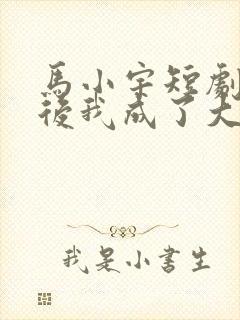 馬小宇短劇
後我成了大
我是小書生